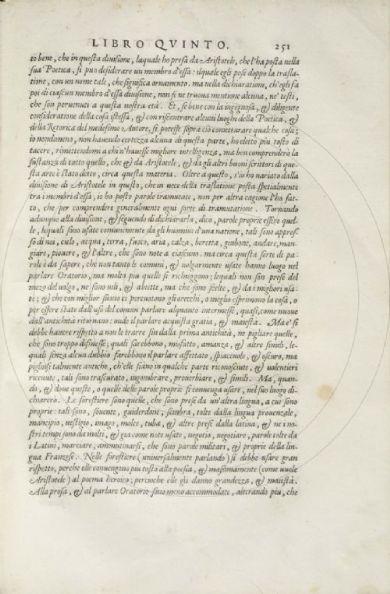 LIBRO QVINTO. 251
to bene, che in questa diuisione, laquale ho presa da Aristotele, che l'ha posta nella
sua Poetica, si può desiderare un membro d'essa: ilquale egli pose doppo la trasla-
tione, con un nome tale, che significa ornamento. ma nella dichiaratione, ch'egli fa
poi di ciascun membro d'essa diuisione, non si ne truoua mentione alcuna, ne' testi,
che son peruenuti a questa nostra età. Et, se bene con la ingegnosa, & diligente
consideratione della cosa istessa, & con riscontrare alcuni luoghi della Poetica, &
della Retorica del medesimo Autore, si potesse sopra ciò comentare qualche cosa;
io nondimeno, non hauendo certezza alcuna di questa parte, ho eletto più tosto di
tacere, rimettendomi a chi n'hauesse migliore intelligenza, ma ben comprendere la
sustanza di tutto quello, che & da Aristotele, & da gli altri buoni scrittori di que-
sta arte è stato detto, circa questa materia. Oltre a questo, s'io ho uariato dalla
diuisione di Aristotele in questo, che in uece della traslatione posta spetialmente
tra i membri d'essa, io ho posto parole tramutate, non per altra cagione l'ho fat-
to, che per comprendere generalmente ogni sorte di tramutatione. Tornando
adunque alla diuisione, & seguendo di dichiararla, dico, parole proprie essere quel-
le, lequali sono usate communemente da gli huomini d'una natione, tali sono appres-
so di noi, cielo, acqua, terra, fuoco, aria, calza, berretta, gonbone, andare, man-
giare, piouere, & l'altre, che sono note a ciascuno. ma circa questa sorte di pa-
role è da sapere, che non tutte le comuni, & uolgarmente usate hanno luogo nel
parlare Oratorio, ma molto più quelle si richieggono; lequali non son prese dal
mezo del uolgo, ne sono uili, & abiette, ma che sono scelte, & da i migliori usa-
te; & che con miglior suono ci percuotono gli orecchi, o meglio esprimono la cosa, o
per essere state dall'uso del comun parlare alquanto intermesse, quasi, come nuoue
dall'antichità ritornano: onde il parlare acquista gratia, & maiestà. Ma e' si
debbe hauere rispetto a non le trarre sin dalla prima antichità, ne pigliare quelle,
che sono troppo disusate; quali sarebbono, mosfatto, amanza, & altre simili, le-
quali senza alcun dubbio farebbono il parlare affettato, spiaceuole, & oscuro, ma
pigliosi talmente antiche, ch'elle siano in qualche parte riconosciute, & uolentieri
riceuute, tali sono trascutato, ingombrare, prouerbiare, & simili. Ma, quan-
do, & doue queste, o quelle delle parole proprie si conuenga usare, nel suo luogo di-
chiarerò. Le forestiere sono quelle, che sono prese da un'altra lingua, a cui sono
proprie: tali sono, souente, guiderdone; sembra, tolte dalla lingua prouenzale,
mancipio, uestigio, imago, molce, tuba, & altre prese dalla latina, & ne i no-
stri tempi sono da molti, & già come note usate, negotio, negotiare, parole tolte da
i Latini, marciare, ammottinarsi, che sono parole militari, & proprie della lin-
gua Franzese. Nelle forestiere (uniuersalmente parlando) si debbe usare gran
rispetto, perche elle conuengono più tosto alla poesia, & massimamente (come uuole
Aristotele) al poema heroico; percioche elle gli danno grandezza, & maiestà.
Alla prosa, & al parlare Oratorio sono meno accommodate, alterando più, che